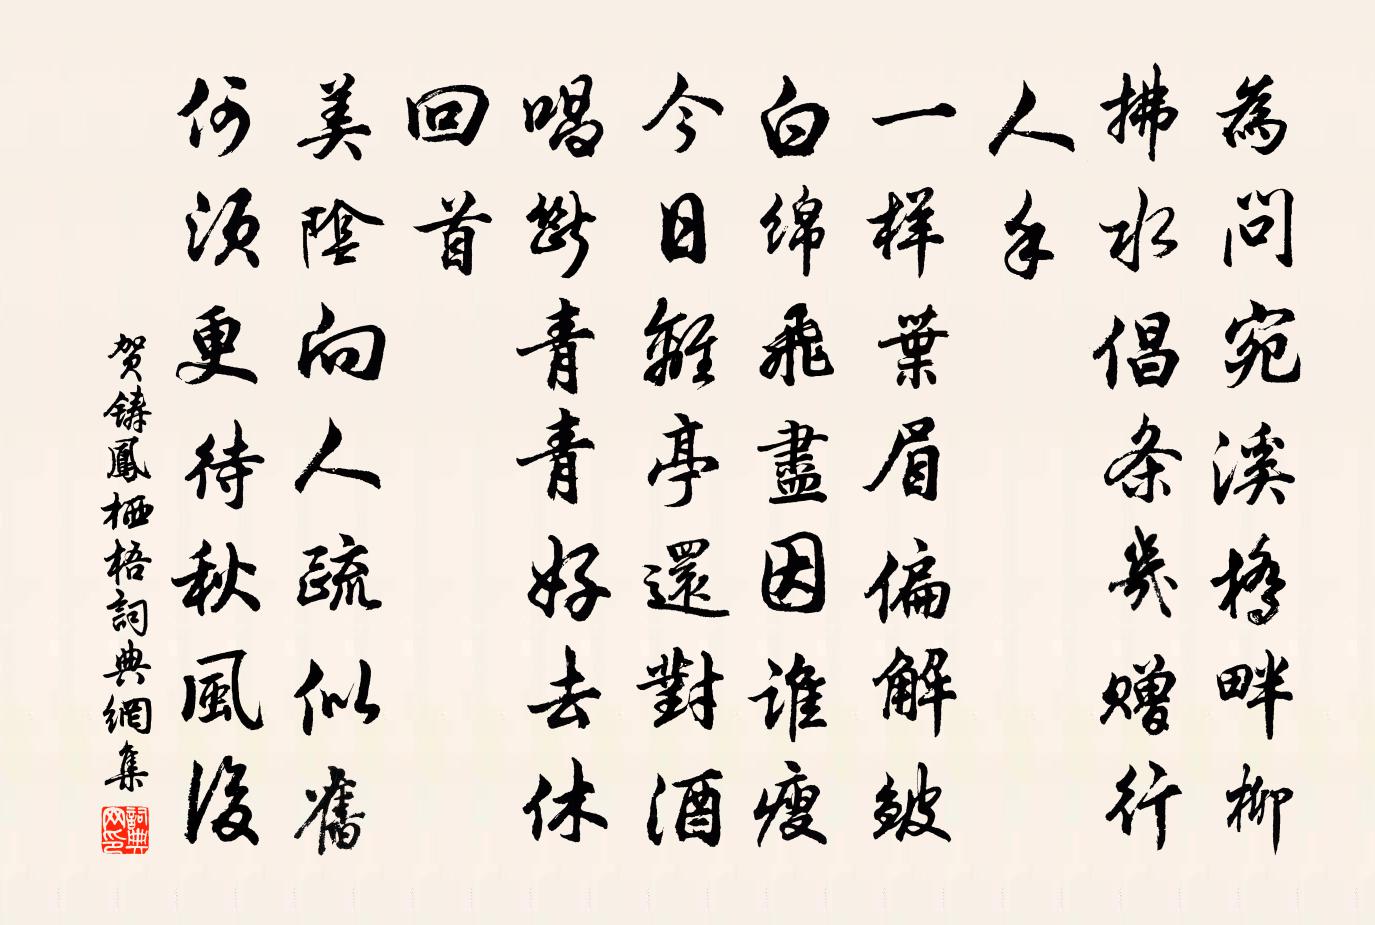 為問宛溪橋畔柳
拂水倡条幾贈行
人手
一样葉眉偏解皺
白绵飛盡因谁瘦
今日離亭還對酒
唱斷青青好去休
回首
美陰向人疏似舊
何须更待秋風後
贺鑄鳳栖梧詞典網集
詞典
网印